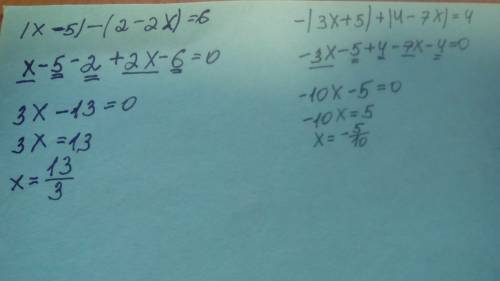 (x-5)-(2-2x)=6
x-5-2+2x-6=0
3x-13=0
3x=13
x=13/3
-(3x+5)+(4-7x)=4
-3x-5+4-7x-4=0
-10x-5=0
-10x=5
x=-5/10